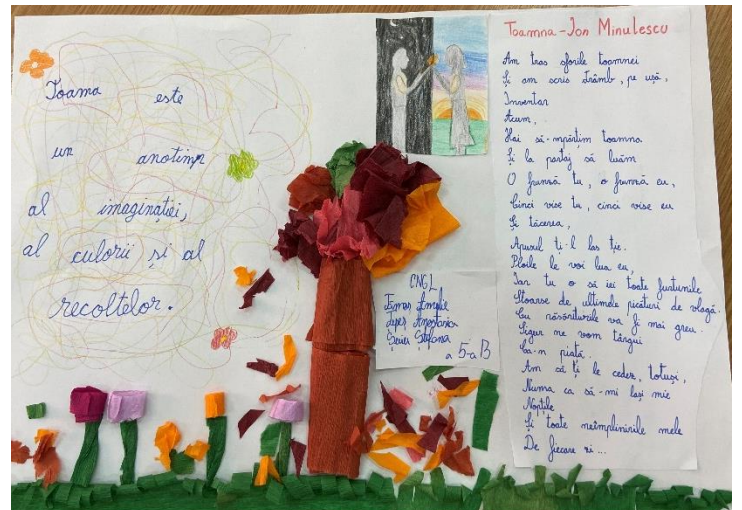 Toamna este
un anotimp
al imaginației,
al culorii și al
recoltelor.
CNGL
Amalie
Lepeș Anastasia
Ștefana
a 5-a B
Toamna - Ion Minulescu
Am tras sforile toamnei
Și am scris strâmb, pe ușă,
Inventar
Acum,
Hai să-mpărțim toamna
Și la partaj să luăm
O frunză tu, o frunză eu,
Cinci vise tu, cinci vise eu
Și tăcerea,
Apusul ți-l las ție.
Ploile le voi lua eu,
Iar tu o să iei toate furtunile
Stoarse de ultimele picături de vlagă.
Cu răsăriturile va fi mai greu.
Sigur ne vom târgui
Ca-n piață.
Am să ți le cedez, totuși,
Numa ca să-mi lași mie
Nopțile
Și toate neîmplinirile mele
De fiecare zi...